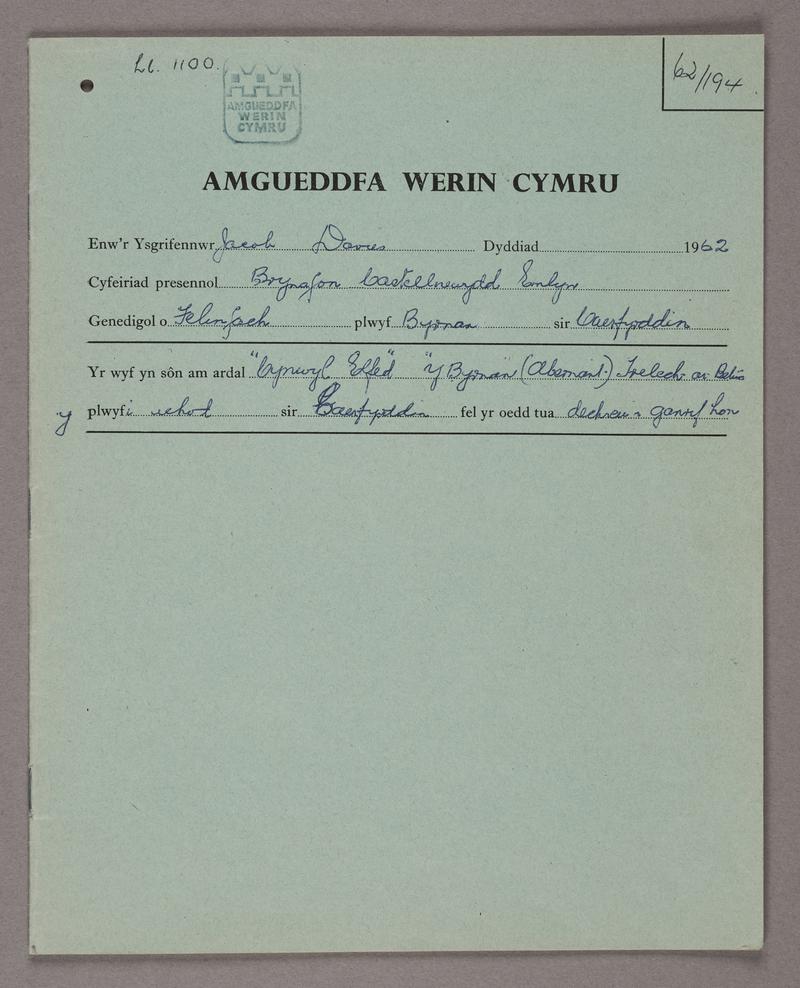 Ll. 1100.
62/194
AMGUEDDFA
WERIN
CYMRU
AMGUEDDFA WERIN CYMRU
Enw'r Ysgrifennwr Jacob Davies Dyddiad 1962
Cyfeiriad presennol Brynafon Castellnewydd Emlyn
Genedigol o Felinfach plwyf Byrnan sir Caerfyrddin
Yr wyf yn sôn am ardal "Cynwyl Elfed" "Y Byrnan (Abernant.) Trelech a'r Betws
y plwyfi uchod sir Caerfyrddin fel yr oedd tua dechrau'r ganrif hon